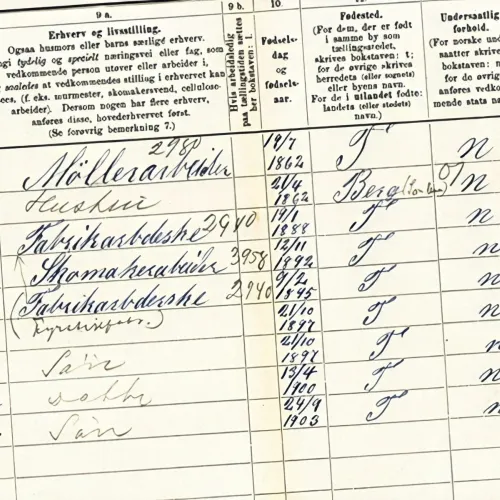 9 a.
Erhverv og livsstilling.
Ogsaa husmors eller barns særlige erhverv.
gi tydelig og specielt næringsvei eller fag, som
vedkommende person utøver eller arbeider i,
og saaledes at vedkommendes stilling i erhvervet kan
ees, (f. eks. murmester, skomakersvend, cellulose-
arbeider). Dersom nogen har flere erhverv,
anføres disse, hovederhvervet først.
(Se forøvrig bemerkning 7.)
9 b.
Hvis arbeidsledig
paa tællingstiden sættes
her bokstaven: l.
10.
Fødsels-
dag
og
fødsels-
aar.
Fødested.
(For dem, der er født
i samme by som
tællingsstedet,
skrives bokstaven: t;
for de øvrige skrives
herredets (eller sognets)
eller byens navn.
For de i utlandet fødte:
landets (eller stedets)
navn.)
Undersaatlig
forhold.
(For norske und
saatter skrives
bokstaven: n
for de øvrige
anføres vedkom
mende stats nav
2980
Møllerarbeider 19/7 1862 T n
Hustru 21/4 1862 Berg n
Fabrikarbderske 2940 19/1 1888 T n
Skomakerarbeider 3958 12/11 1892 T n
(Fabrikarbderske 2940 9/2 1895 T n
21/10 1897 T n
Søn 21/10 1897 T n
Datter 13/4 1900 T n
Søn 24/9 1903 T n